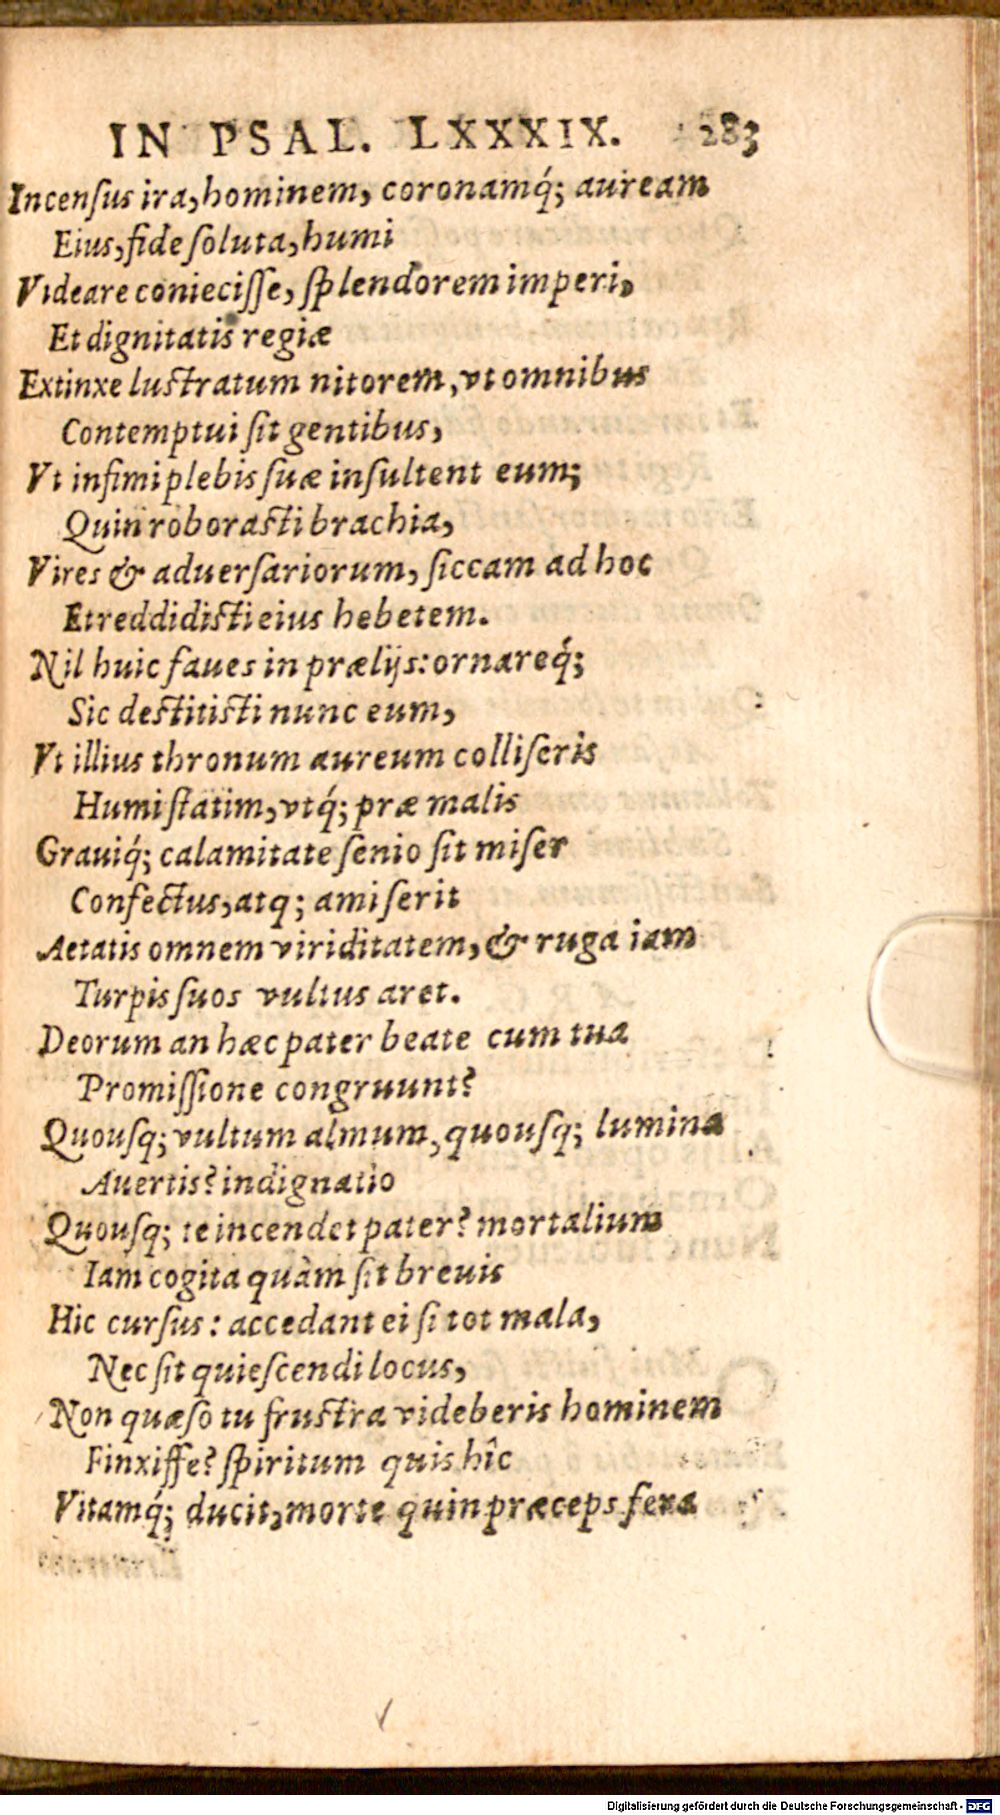 IN PSAL. LXXXIX. 283
Incenſus ira, hominem, coronamq́; auream
Eius, fide ſoluta, humi
Videare conieciſſe, ſplendorem imperi,
Et dignitatis regiæ
Extinxe luſtratum nitorem, vt omnibus
Contemptui ſit gentibus,
Vt infimi plebis ſuæ inſultent eum;
Quin roboraſti brachia,
Vires & aduerſariorum, ſiccam ad hoc
Et reddidiſti eius hebetem.
Nil huic faues in prælijs: ornareq́;
Sic deſtitiſti nunc eum,
Vt illius thronum aureum colliſeris
Humi ſtatim, vtq́; præ malis
Grauiq́; calamitate ſenio ſit miſer
Confectus, atq; amiſerit
Aetatis omnem viriditatem, & ruga iam
Turpis ſuos vultus aret.
Deorum an hæc pater beate cum tua
Promiſſione congruunt?
Quouſq; vultum almum, quouſq; lumina
Auertis? indignatio
Quouſq; te incendet pater? mortalium
Iam cogita quàm ſit breuis
Hic curſus: accedant ei ſi tot mala,
Nec ſit quieſcendi locus,
Non quæſo tu fruſtra videberis hominem
Finxiſſe? ſpiritum quis hîc
Vitamq́; ducit, morte quin præceps fera
Digitalisierung gefördert durch die Deutsche Forschungsgemeinschaft - DFG